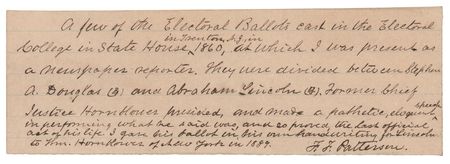 A few of the Electoral Ballots cast in the Electoral
in Trenton, N.J., in
College in State House, 1860, at which I was present as
a newspaper reporter. They were divided between Stephen
A. Douglas (3) and Abraham Lincoln (4). Former Chief
Justice Hornblower presided, and made a pathetic, eloquent speech
in performing what he said was, and so proved, the last official
act of his life. I gave his ballot in his own handwriting for Lincoln
to Wm. Hornblower of New York in 1889.
F. F. Patterson.